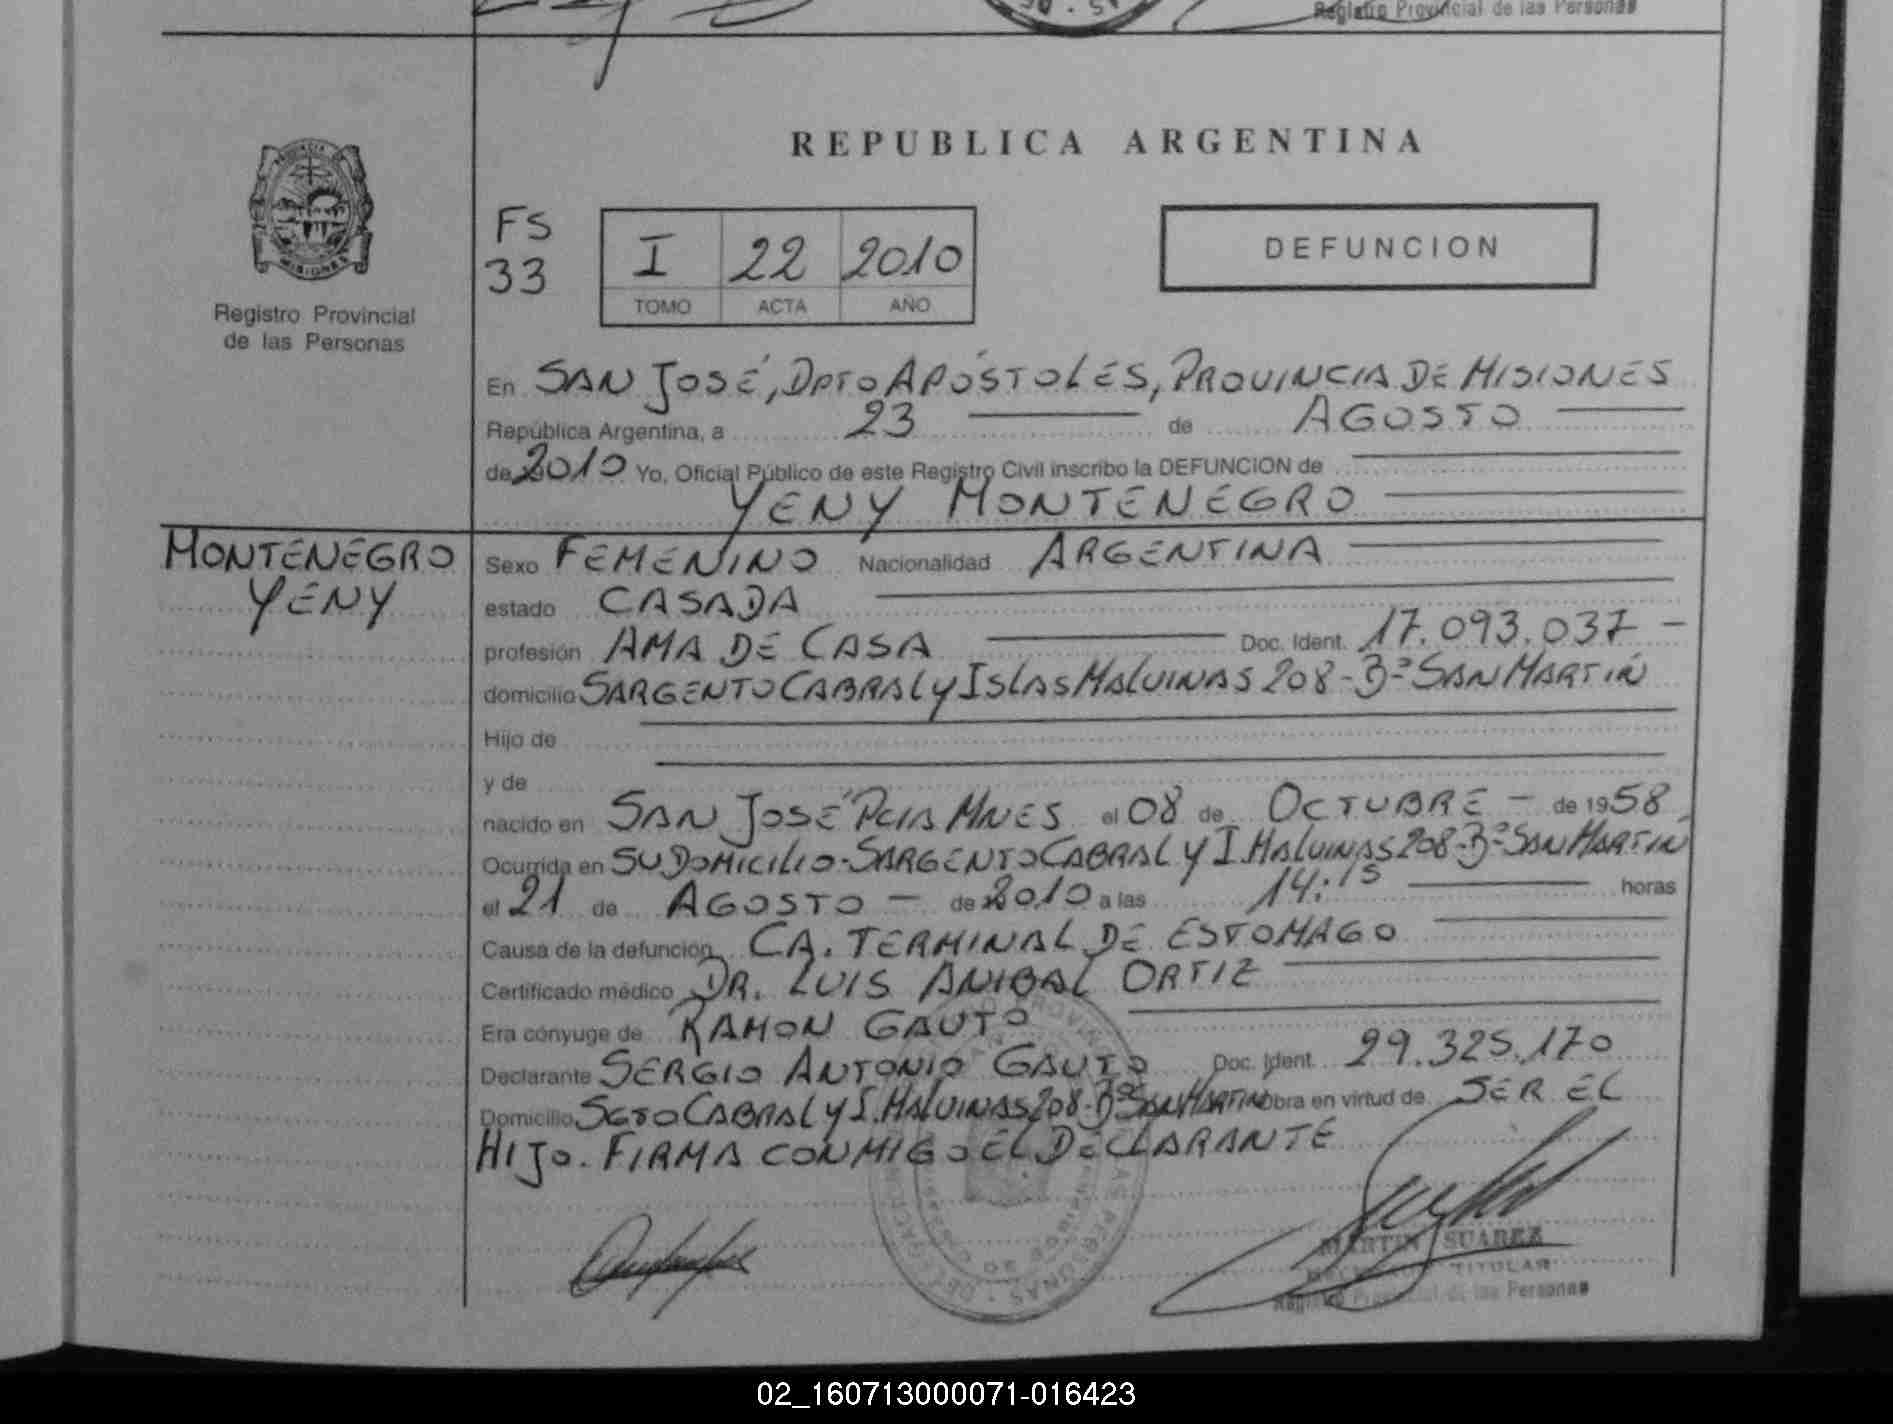 Registro Provincial de las Personas
REPUBLICA ARGENTINA
PROVINCIA DE
MISIONES
Registro Provincial
de las Personas
FS
33
I 22 2010
TOMO ACTA AÑO
DEFUNCION
En SAN JOSÉ, DPTO APÓSTOLES, PROVINCIA DE MISIONES
República Argentina, a 23 de AGOSTO
de 2010 Yo, Oficial Público de este Registro Civil inscribo la DEFUNCION de
YENY MONTENEGRO
MONTENEGRO
YENY
Sexo FEMENINO Nacionalidad ARGENTINA
estado CASADA
profesión AMA DE CASA Doc. Ident. 17.093.037 -
domicilio SARGENTO CABRAL Y ISLAS MALVINAS 208 - Bº SAN MARTIN
Hijo de
y de
nacido en SAN JOSÉ PCIA MNES el 08 de OCTUBRE - de 1958
Ocurrida en SU DOMICILIO - SARGENTO CABRAL Y I. MALVINAS 208 - Bº SAN MARTIN
el 21 de AGOSTO - de 2010 a las 14:15 horas
Causa de la defunción CA. TERMINAL DE ESTOMAGO
Certificado médico DR. LUIS ANIBAL ORTIZ
Era cónyuge de RAMON GAUTO
Declarante SERGIO ANTONIO GAUTO Doc. Ident. 29.325.170
Domicilio SGTO CABRAL Y I. MALVINAS 208 - Bº SAN MARTIN Obra en virtud de SER EL
HIJO. FIRMA CONMIGO EL DECLARANTE
MARTIN SUAREZ
TITULAR
Registro Provincial de las Personas
02_160713000071-016423